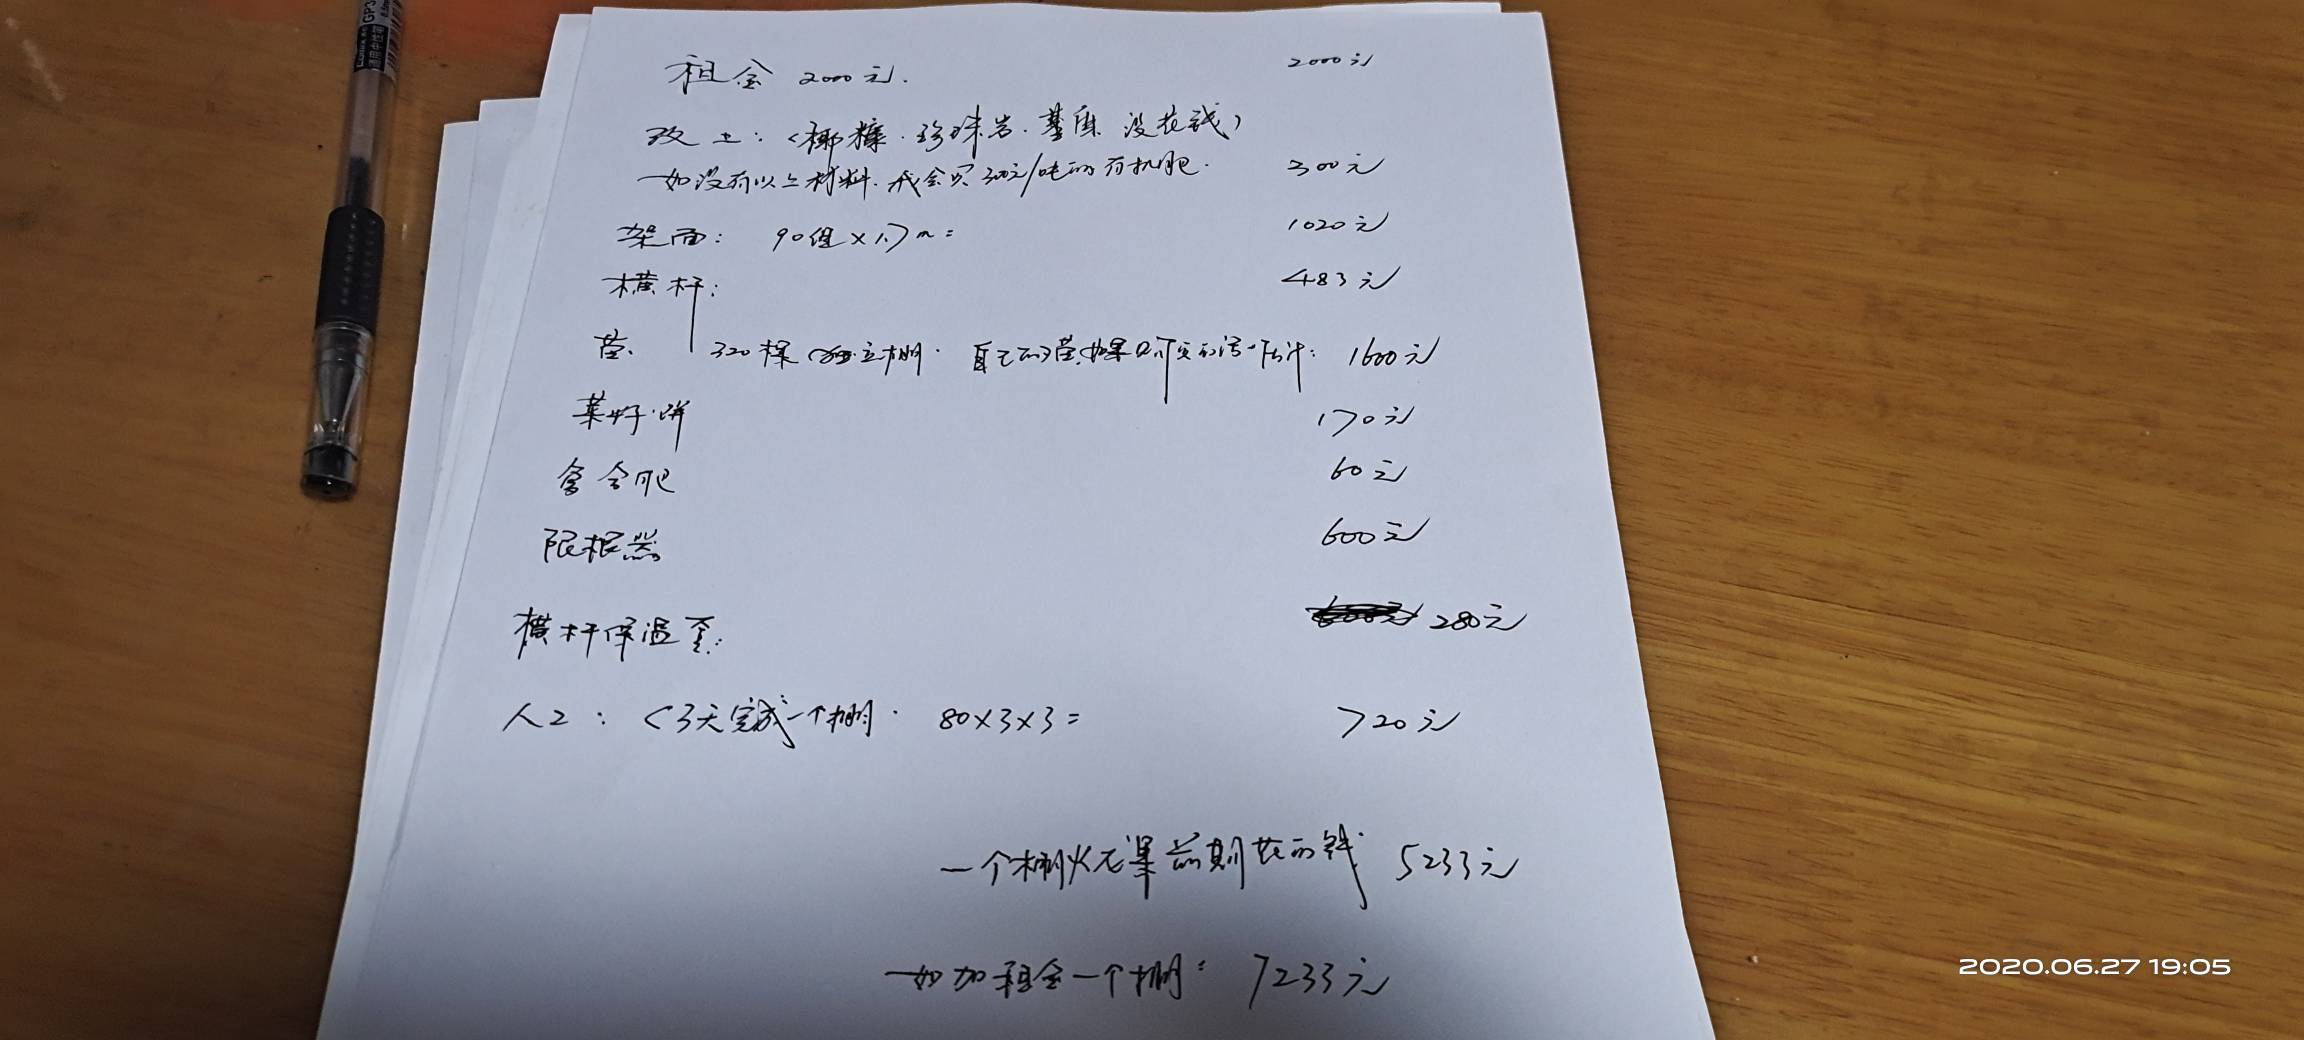 租金 2000元. 2000元
改土:(椰糠.珍珠岩.草炭 没花钱)
如没有以上材料.我会买300元/吨的有机肥. 300元
架面: 90组×1.7m= 1020元
横杆: 483元
苗. 320棵 立棚. 自己的苗,如果 买的话 1600元
菜籽饼 170元
复合肥 60元
限根器 600元
横杆保温 : 280元
人工:(3天完成一个棚. 80×3×3= 720元
一个棚火龙果前期花的钱 5233元
如加租金一个棚: 7233元
GP3
通用中性笔
2020.06.27 19:05